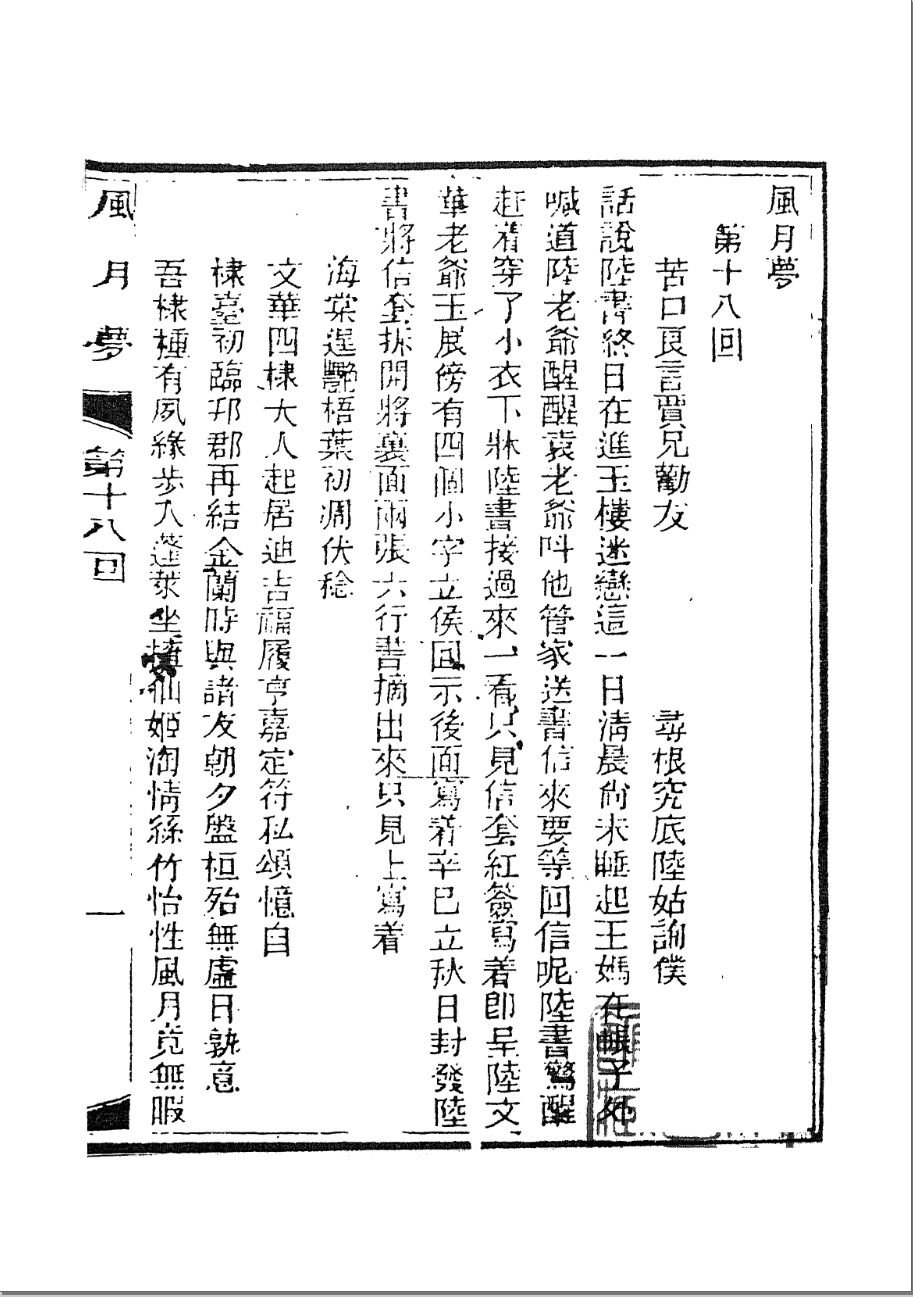 風月夢
第十八回
苦口良言賈兄勸友 尋根究底陸姑詢僕
話說陸書終日在進玉樓迷戀這一日清晨尙未睡起王媽在帳子外
喊道陸老爺醒醒袁老爺呌他管家送書信來要等回信呢陸書驚醒
赶着穿了小衣下牀陸書接過來一看只見信套紅簽寫着卽呈陸文
華老爺玉展傍有四個小字立侯回示後面寫着辛巳立秋日封發陸
書將信套拆開將裏面兩張六行書摘出來只見上寫着
海棠逞艷梧葉初凋伏稔
文華四棣大人起居迪吉福履亨嘉定符私頌憶自
棣臺初臨邗郡再結金蘭時與諸友朝夕盤桓殆無虛日孰意
吾棣種有夙緣步入蓬萊坐擁仙姬淘情絲竹怡性風月竟無暇
風月夢 第十八回 一